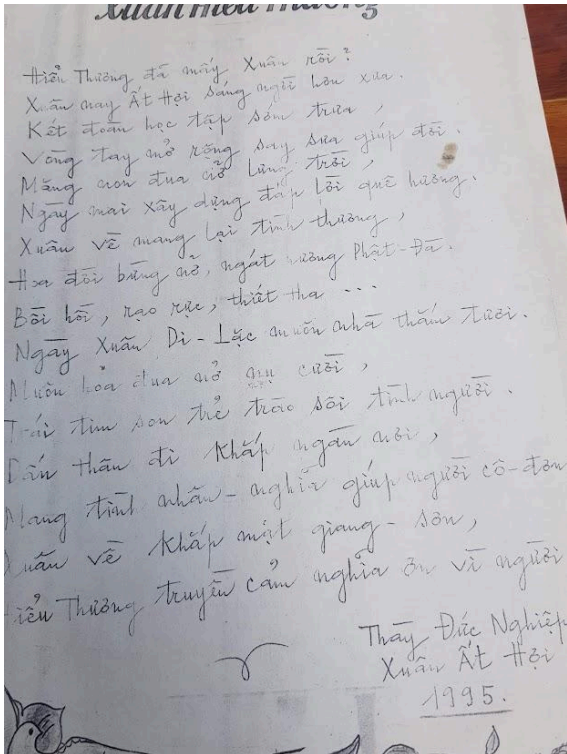 Xuân Hiểu Thương
Hiểu Thương đã mấy Xuân rồi?
Xuân nay Ất Hợi sáng ngời hơn xưa.
Kết đoàn học tập sớm trưa,
Vòng tay mở rộng say sưa giúp đời.
Măng non đua nở lưng trời,
Ngày mai xây dựng đáp lời quê hương.
Xuân về mang lại tình thương,
Hoa đời bừng nở, ngát hương Phật-Đà.
Bồi hồi, rạo rực, thiết tha ...
Ngày Xuân Di-Lặc muôn nhà thắm tươi.
Muôn hoa đua nở nụ cười,
Trái tim son trẻ trào sôi tình người.
Dấn thân đi khắp ngàn nơi,
Mang tình nhân-nghĩa giúp người cô-đơn
Xuân về khắp mặt giang-sơn,
Hiểu Thương truyền cảm nghĩa ơn vì người
Thầy Đức Nghiệp
Xuân Ất Hợi
1995.